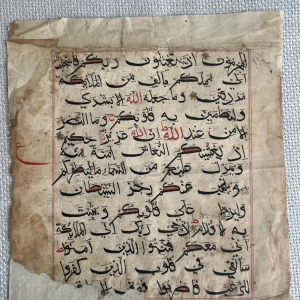 المجرمون اذ تستغيثون ربكم فاستجاب
اني ممدكم بالف من الملئكة
مردفين وما جعله الله الا بشرى
ولتطمئن به قلوبكم وما النصر
الا من عند الله ان الله عزيز حكيم
اذ يغشيكم النعاس امنة منه
وينزل عليكم من السماء ماء ليطهركم
ويذهب عنكم رجز الشيطان
وليربط على قلوبكم ويثبت
به الاقدام اذ يوحي ربك الى الملئكة
اني معكم فثبتوا الذين امنوا
سالقي في قلوب الذين كفروا
الرعب فاضربوا فوق
ع